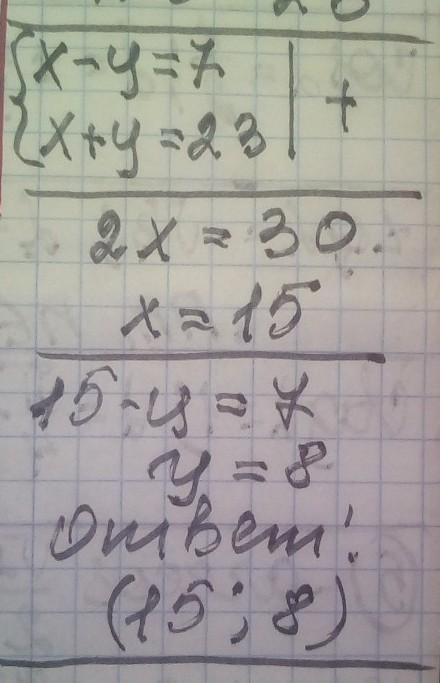 {x-y=7
{x+y=23 | +
2x=30
x=15
15-y=7
y=8
Ответ:
(15; 8)